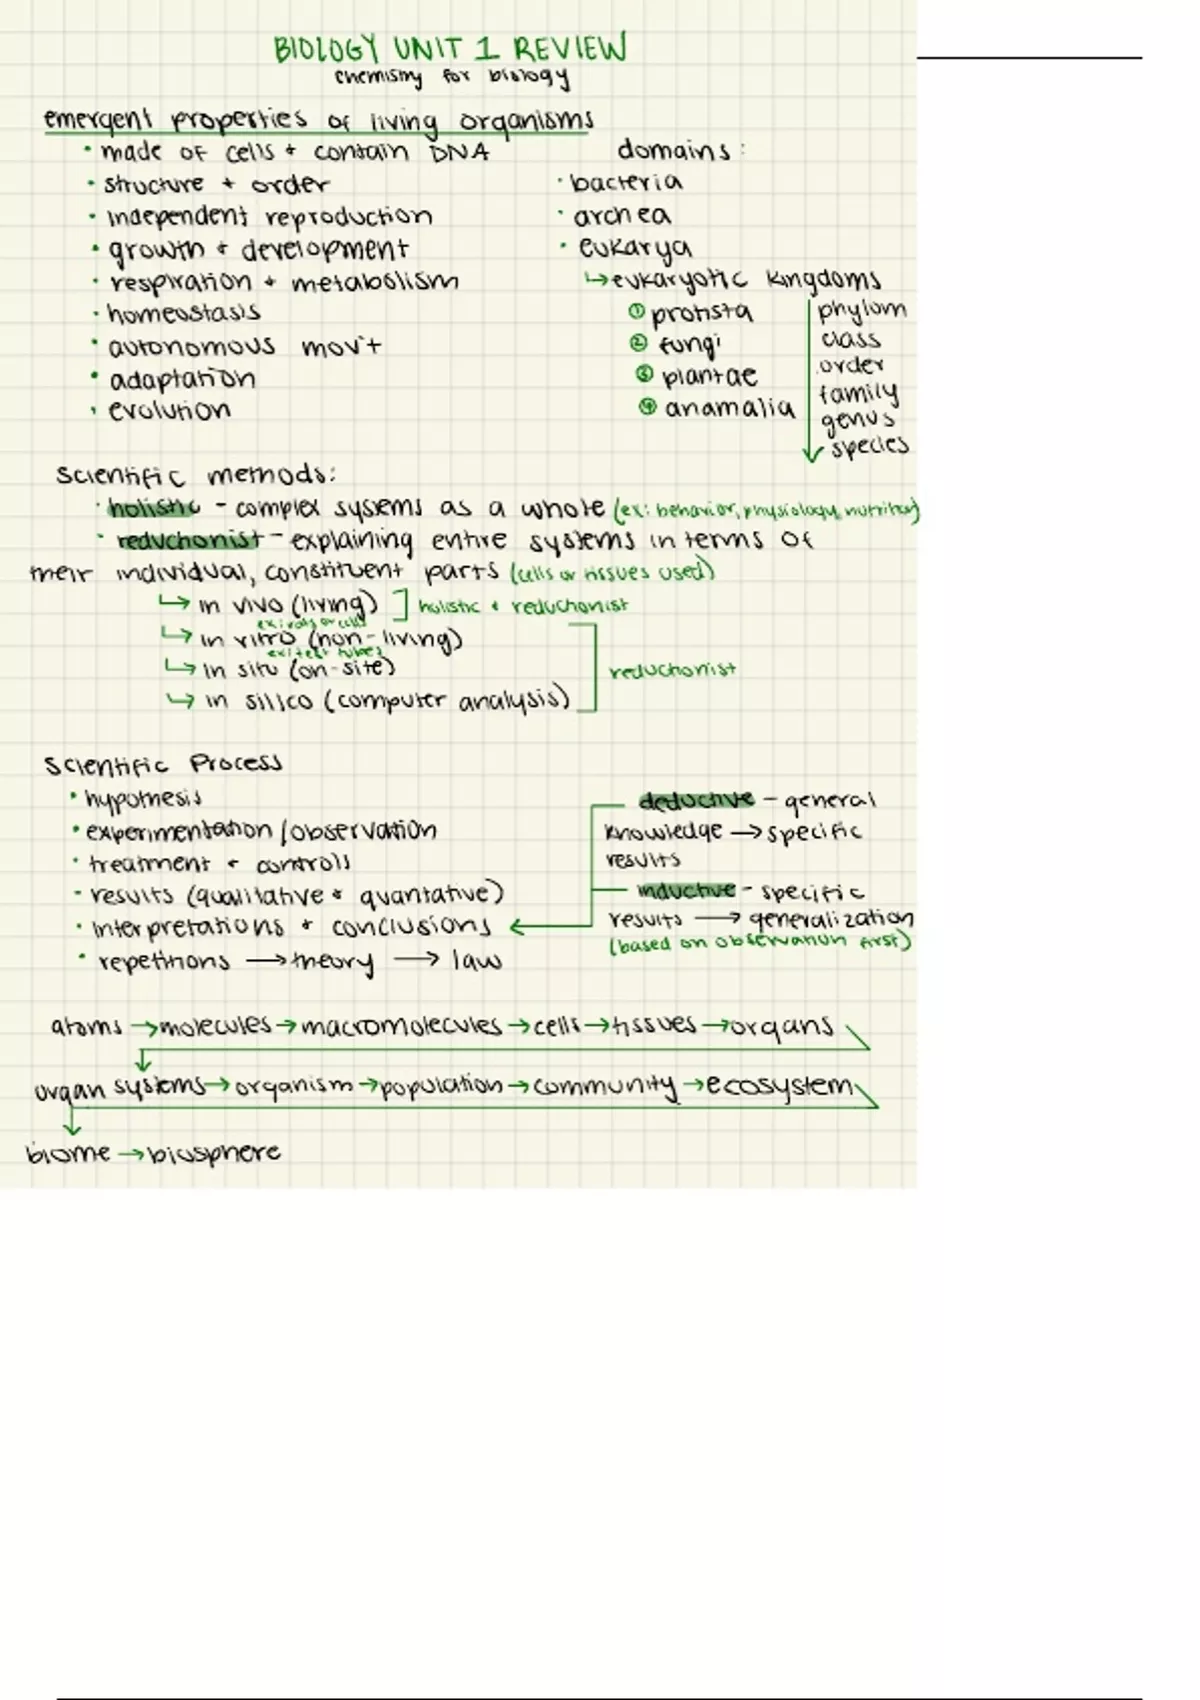 BIOLOGY UNIT 1 REVIEW
chemistry for biology
emergent properties of living organisms
• made of cells + contain DNA
• structure + order
• independent reproduction
• growth + development
• respiration + metabolism
• homeostasis
• autonomous mov't
• adaptation
• evolution
domains:
• bacteria
• archea
• eukarya
↳ eukaryotic kingdoms
① protista
② fungi
③ plantae
④ anamalia
phylum
class
order
family
genus
species
scientific methods:
• holistic - complex systems as a whole (ex: behavior, physiology, nutrition)
• reductionist - explaining entire systems in terms of
their individual, constituent parts (cells or tissues used)
↳ in vivo (living) ] holistic + reductionist
ex: rats or cells
↳ in vitro (non-living)
ex: test tubes
↳ in situ (on-site)
reductionist
↳ in silico (computer analysis)
Scientific Process
• hypothesis
• experimentation/observation
• treatment + controls
• results (qualitative + quantative)
• interpretations + conclusions
• repetitions → theory → law
deductive - general
knowledge → specific
results
inductive - specific
results → generalization
(based on observation first)
atoms → molecules → macromolecules → cells → tissues → organs
organ systems → organism → population → community → ecosystem
biome → biosphere